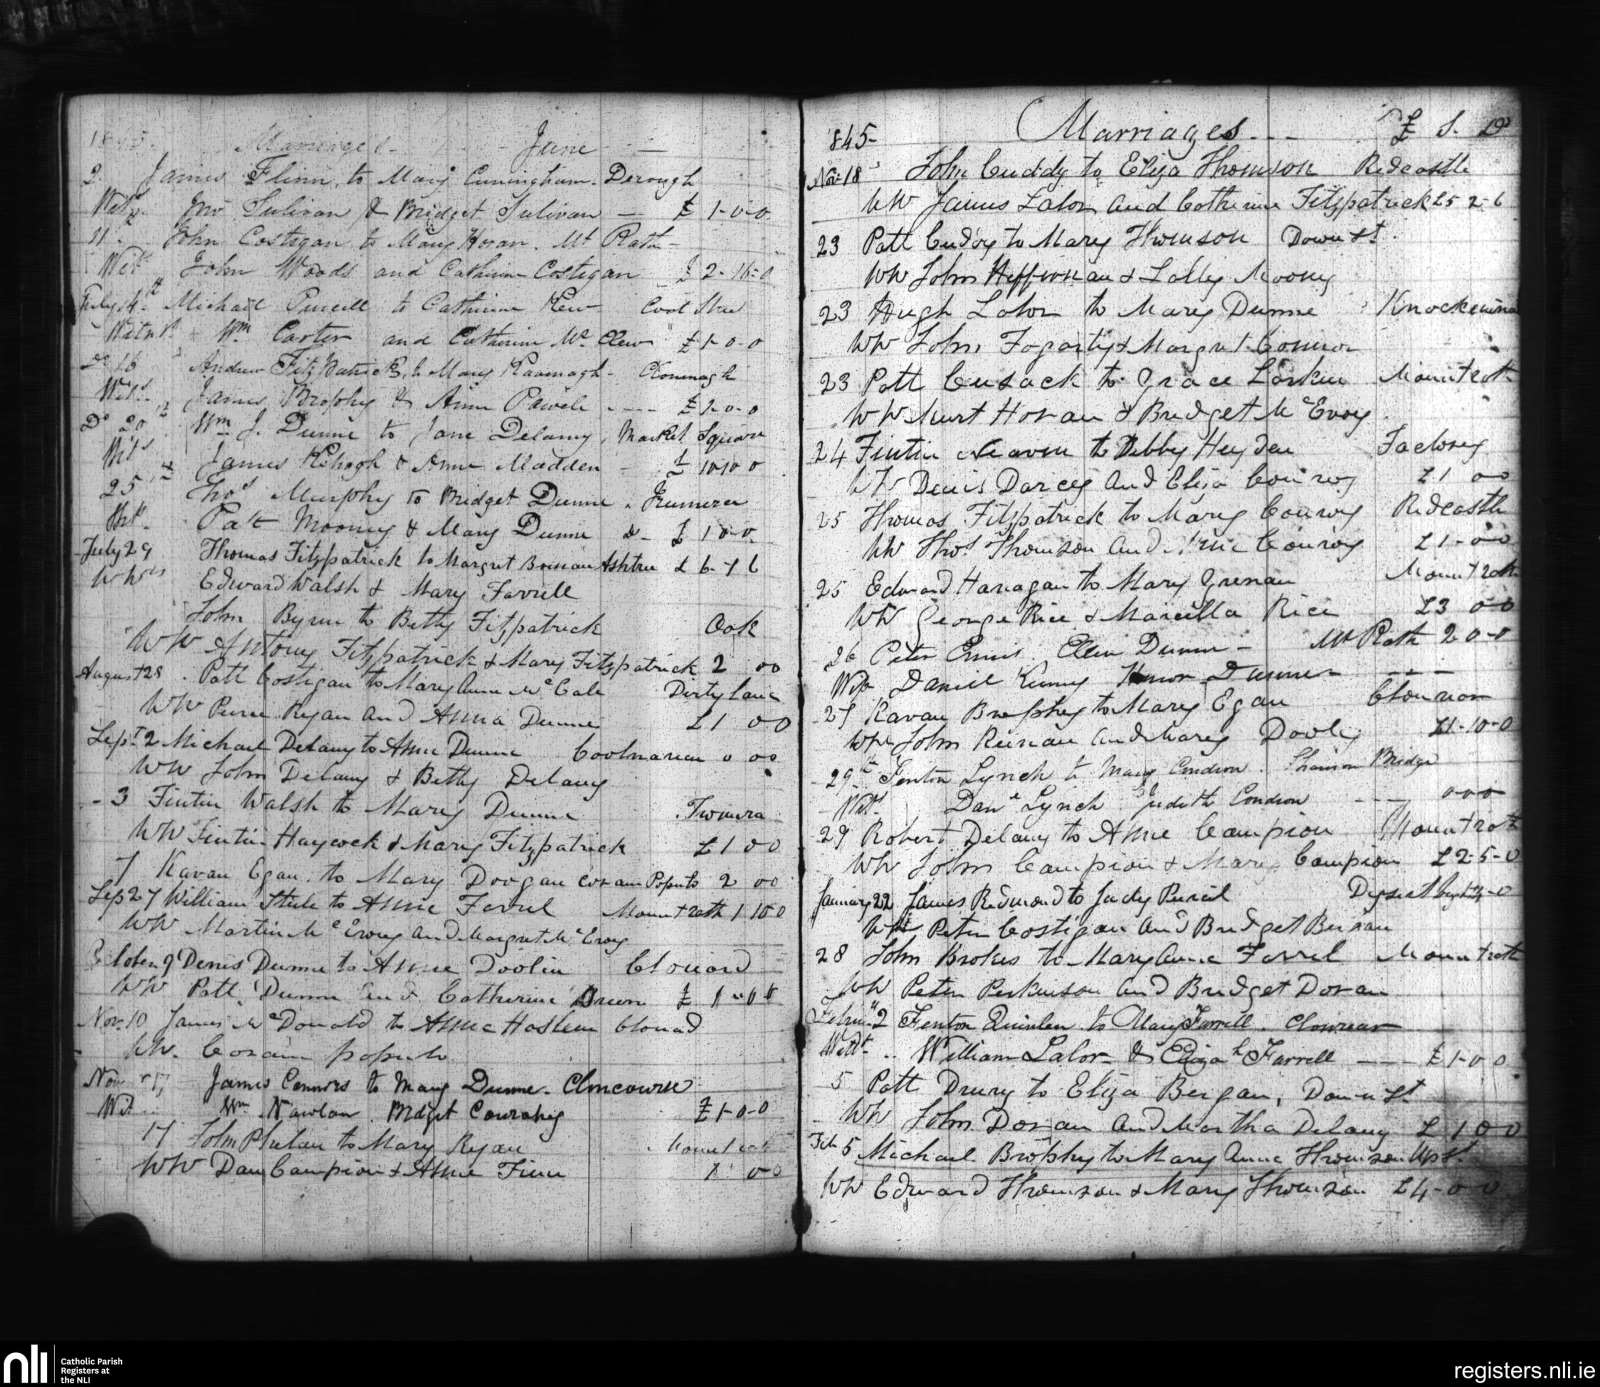 1845 Marriages June
2 James Flinn to Mary Cuningham Derough
Wits Jno Sulivan & Bridget Sulivan — £ 1-0-0
11 John Costigan to Mary Horan Mt Rath
Wits John Woods and Catherine Costigan £ 2-16-0
July 14th Michael Purcell to Catherine Cool
Witns Wm Carter and Catherine Mc Clew £ 1-0-0
do 16 Andrew FitzPatrick to Mary Kavenagh
Wits James Brophy & Anne £ 1-0-0
Do 20th Wm J. Dunne to Jane Delany, Market Square
Wits James Kehogh & Anne Madden — £ 1010 0
25th Thos Murphy to Bridget Dunne
Wits Patt Mooney & Mary Dunne £ 1 0-0
July 29 Thomas Fitzpatrick to Margret Ashtree £ 6-7 6
WWns Edward Walsh & Mary Farrell
John Byrne to Betty Fitzpatrick Oak
WW Antony Fitzpatrick & Mary Fitzpatrick 2 00
August 28 Patt Costigan to Mary Anne McCabe Dirty Lane
WW Ryan and Anna Dunne £1 00
Sept 2 Michael Delany to Anne Dunne 0 00
WW John Delany & Betty Delany
3 Fintin Walsh to Mary Dunne
WW Fintin Haycock & Mary Fitzpatrick £1 00
7 Kavan Egan to Mary Doogan coram Populo 2 00
Sep 27 William Steele to Anne Ferrel Mountrath 1 10 0
WW Martin McEvoy and Margret McEvoy
October 9 Denis Dunne to Anne Doolin Clonard
WW Patt Dunne and Catherine £ 1 " 0 0
Nov. 10 James McDonald to Anne Haslem Clonad
WW. Coram populo
Nov 17 James Connors to Mary Dunne. Cloncourse
Wit Wm Nawlan Bridget £1-0-0
17 John Phelan to Mary Ryan Mountrath
WW Dan Campion & Anne Finn 1 00
845- Marriages £ S. D
Nov. 18 John Cuddy to Eliza Thomson Redcastle
WW James Lalor and Catherine Fitzpatrick £5 2-6
23 Patt Cuddy to Mary Thomson Down St.
WW John Heffernan & Lally Moony
23 Hugh Lalor to Mary Dunne
WW John Fogarty & Margret Connor
23 Patt Cusack to Grace Larkin Mountrath
WW Kurt Horan & Bridget McEvoy
24 Fintin to Debby Heyden Factory
WW Denis Darcy and Eliza Conroy £1 00
25 Thomas Fitzpatrick to Mary Conroy Redcastle
WW Thos Thomson and Anne Conroy £1-0-0
25 Edward Hanagan to Mary Grenan Mountrath
WW George Rice & Marcella Rice £3 00
26 Peter Ennis Ellen Dunne — Mt Rath 2 0-0
Wits Daniel Kinny Honor Dunne
27 Kavan Brophy to Mary Egan
WW John Keenan and Mary Dooly £1-10-0
29th Fenton Lynch to Mary Condron. Shannon Bridge
Wits Danl Lynch Judith Condron 0-0-0
29 Robert Delany to Anne Campion Mountrath
WW John Campion & Mary Campion £2-5-0
January 22 James Redmond to Judy
Wit Peter Costigan and Bridget
28 John Brokes to Mary Anne Ferrel Mountrath
WW Peter Perkinson and Bridget Doran
2 Fenton Quinlan to Mary Farrell.
Witts William Lalor & Elizath Farrell — £1-0 0
5 Patt Drury to Eliza Bergan, Down St
WW John Doran and Martha Delany £1 0 0
Feb 5 Michael Brophy to Mary Anne Thomson Up St.
WW Edward Thomson & Mary Thomson £4-0-0
nli Catholic Parish
Registers at
the NLI
registers.nli.ie